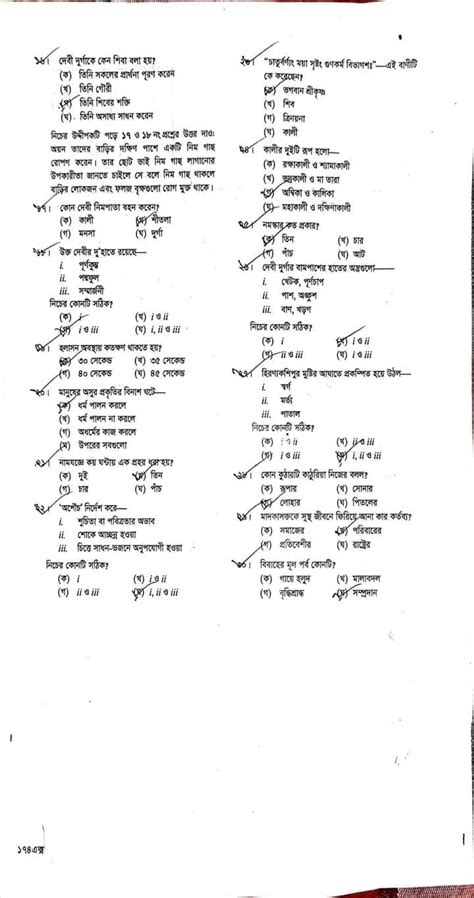 ১৬। দেবী দুর্গাকে কেন শিবা বলা হয়?
(ক) তিনি সকলের প্রার্থনা পূরণ করেন
(খ) তিনি গৌরী
(গ) তিনি শিবের শক্তি
(ঘ) তিনি অসাধ্য সাধন করেন
নিচের উদ্দীপকটি পড়ে ১৭ ও ১৮ নং প্রশ্নের উত্তর দাও:
অয়ন তাদের বাড়ির দক্ষিণ পাশে একটি নিম গাছ
রোপণ করেন। তার ছোট ভাই নিম গাছ লাগানোর
উপকারীতা জানতে চাইলে সে বলে নিম গাছ থাকলে
বাড়ির লোকজন এবং ফলজ বৃক্ষগুলো রোগ মুক্ত থাকে।
১৭। কোন দেবী নিমপাতা বহন করেন?
(ক) কালী (খ) শীতলা
(গ) মনসা (ঘ) দুর্গা
১৮। উক্ত দেবীর দু'হাতে রয়েছে—
i. পূর্ণকুম্ভ
ii. পদ্মফুল
iii. সম্মার্জনী
নিচের কোনটি সঠিক?
(ক) i (খ) i ও ii
(গ) i ও iii (ঘ) i, ii ও iii
১৯। হলাসন অবস্থায় কতক্ষণ থাকতে হয়?
(ক) ৩০ সেকেন্ড (খ) ৩৫ সেকেন্ড
(গ) ৪০ সেকেন্ড (ঘ) ৪৫ সেকেন্ড
২০। মানুষের অসুর প্রকৃতির বিনাশ ঘটে—
(ক) ধর্ম পালন করলে
(খ) ধর্ম পালন না করলে
(গ) অধর্মের কাজ করলে
(ঘ) উপরের সবগুলো
২১। নামযজ্ঞে কয় ঘন্টায় এক প্রহর ধরা হয়?
(ক) দুই (খ) তিন
(গ) চার (ঘ) পাঁচ
২২। 'অশৌচ' নির্দেশ করে—
i. শুচিতা বা পবিত্রতার অভাব
ii. শোকে আচ্ছন্ন হওয়া
iii. চিত্তে সাধন-ভজনে অনুপযোগী হওয়া
নিচের কোনটি সঠিক?
(ক) i (খ) i ও ii
(গ) ii ও iii (ঘ) i, ii ও iii
২৩। "চাতুর্বর্ণ্যং ময়া সৃষ্টং গুণকর্ম বিভাগশঃ"—এই বাণীটি
কে করেছেন?
(ক) ভগবান শ্রীকৃষ্ণ
(খ) শিব
(গ) ত্রিনয়না
(ঘ) কালী
২৪। কালীর দুইটি রূপ হলো—
(ক) রক্ষাকালী ও শ্যামাকালী
(খ) ভদ্রকালী ও মা তারা
(গ) অম্বিকা ও কালিকা
(ঘ) মহাকালী ও দক্ষিণাকালী
২৫। নমস্কার কত প্রকার?
(ক) তিন (খ) চার
(গ) পাঁচ (ঘ) আট
২৬। দেবী দুর্গার বামপাশের হাতের অস্ত্রগুলো—
i. খেটক, পূর্ণচাপ
ii. পাশ, অঙ্কুশ
iii. বাণ, খড়গ
নিচের কোনটি সঠিক?
(ক) i (খ) i ও ii
(গ) ii ও iii (ঘ) i ও iii
২৭। হিরণ্যকশিপুর মুষ্টির আঘাতে প্রকম্পিত হয়ে উঠল—
i. স্বর্গ
ii. মর্ত্য
iii. পাতাল
নিচের কোনটি সঠিক?
(ক) i ও ii (খ) ii ও iii
(গ) i ও iii (ঘ) i, ii ও iii
২৮। কোন কুঠারটি কাঠুরিয়া নিজের বলল?
(ক) রূপার (খ) সোনার
(গ) লোহার (ঘ) পিতলের
২৯। মাদকাসক্তকে সুস্থ জীবনে ফিরিয়ে আনা কার কর্তব্য?
(ক) সমাজের (খ) পরিবারের
(গ) প্রতিবেশীর (ঘ) রাষ্ট্রের
৩০। বিবাহের মূল পর্ব কোনটি?
(ক) গায়ে হলুদ (খ) মালাবদল
(গ) বৃদ্ধিশ্রাদ্ধ (ঘ) সম্প্রদান
১৭৪এক্স